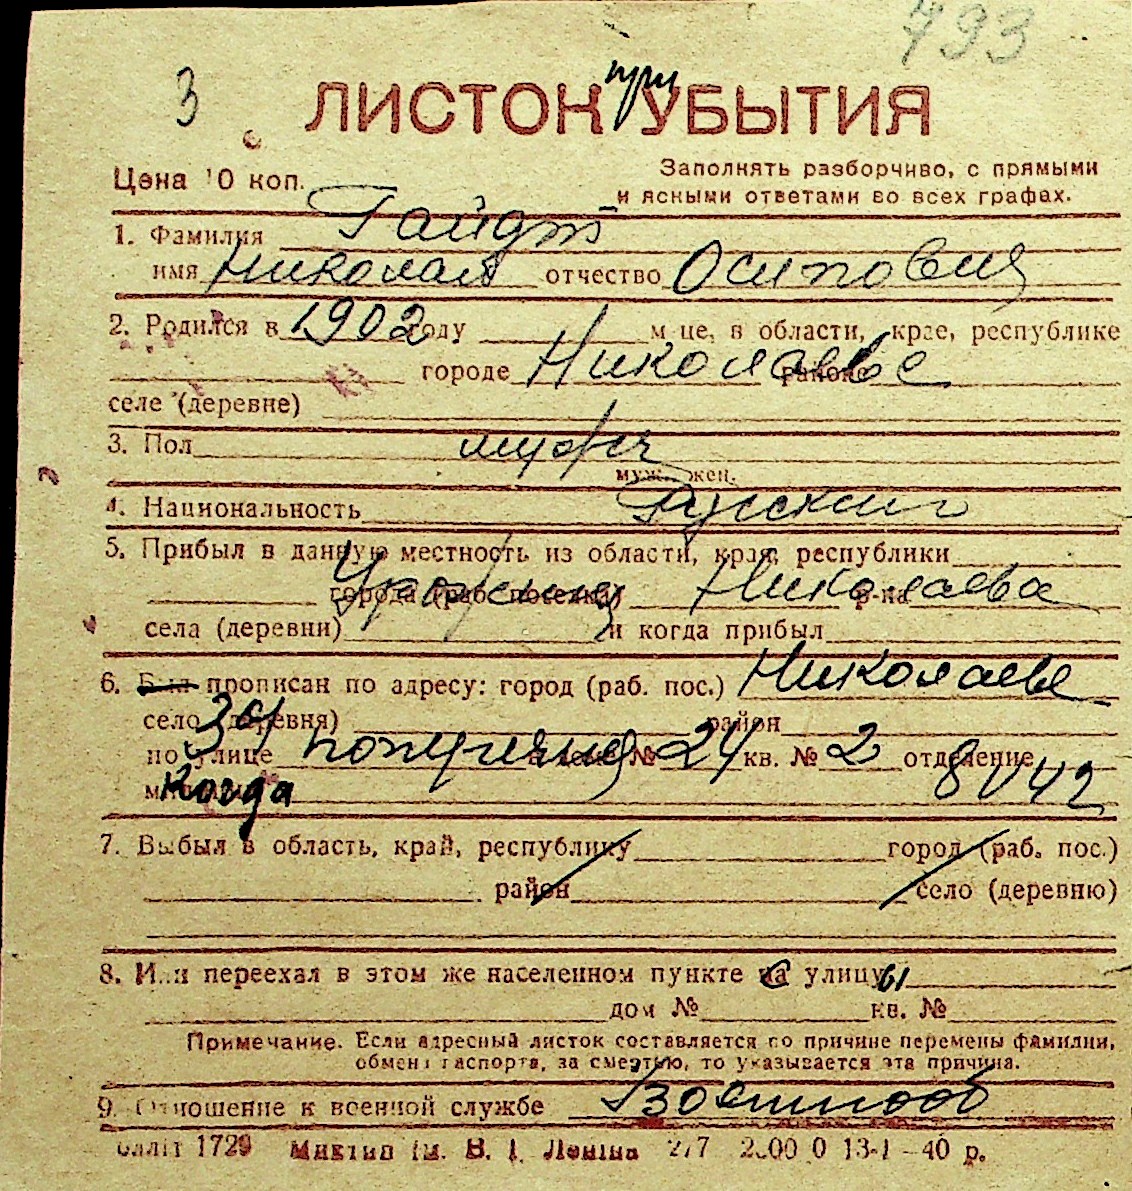 793
3
при
ЛИСТОК УБЫТИЯ
Цена 10 коп.
Заполнять разборчиво, с прямыми
и ясными ответами во всех графах.
1. Фамилия Гайдт
имя Николай отчество Осипович
2. Родился в 1902 году м-це, в области, крае, республике
городе Николаеве районе
селе (деревне)
3. Пол мужч
муж. жен.
4. Национальность Русский
5. Прибыл в данную местность из области, края, республики
города (раб. поселка) Николаева р-на
села (деревни) и когда прибыл
6. Был прописан по адресу: город (раб. пос.) Николаеве
село (деревня) район
по улице 3я поперечная дом № 24 кв. № 2 отделение
милиции Когда 8 IV 42
7. Выбыл в область, край, республику город (раб. пос.)
район село (деревню)
8. Или переехал в этом же населенном пункте с улицы
дом № кв. №
Примечание. Если адресный листок составляется по причине перемены фамилии,
обмена паспорта, за смертью, то указывается эта причина.
9. Отношение к военной службе
1729 В. І. Леніна 2/7 13-1-40 р.